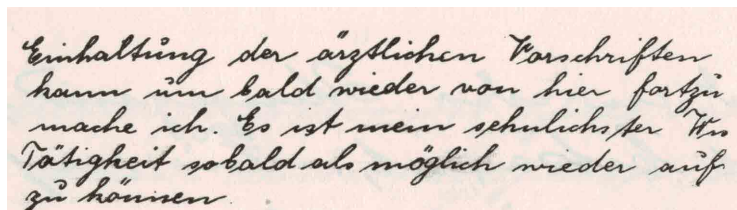 Einhaltung der ärztlichen Vorschriften
kann um bald wieder von hier fortzu
mache ich. Es ist mein sehnlichster Wu
Tätigkeit sobald als möglich wieder auf
zu können